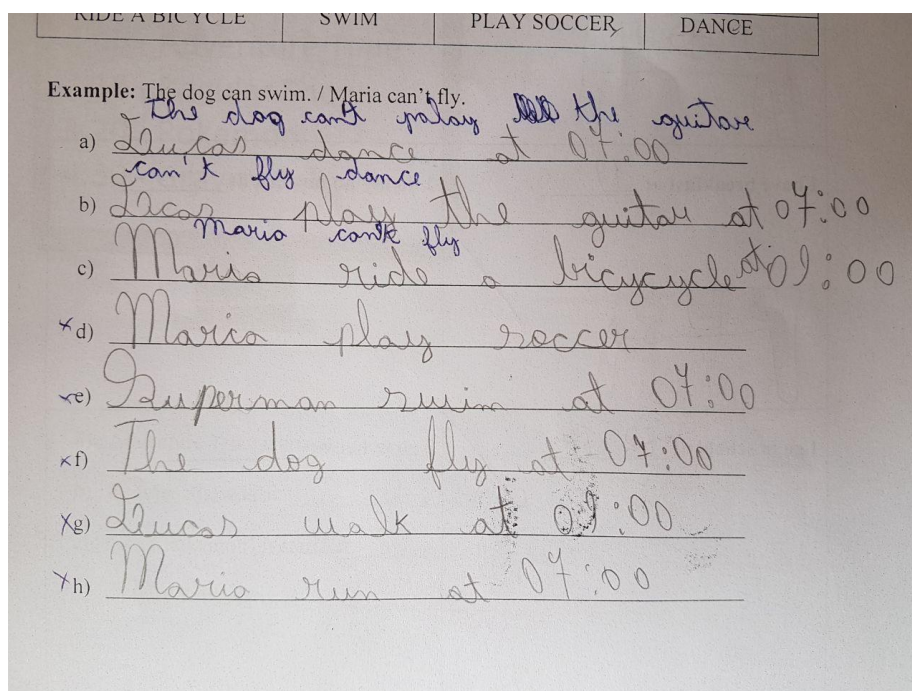 RIDE A BICYCLE SWIM PLAY SOCCER DANCE
Example: The dog can swim. / Maria can't fly.
The dog can't palay the guitare
a) Lucas dance at 07:00
can't fly dance
b) Lucas play the guitar at 07:00
Maria can't fly
c) Maria ride a bicycycle at 09:00
x d) Maria play soccer
x e) Superman swim at 07:00
x f) The dog fly at 07:00
x g) Lucas walk at 09:00
x h) Maria run at 07:00